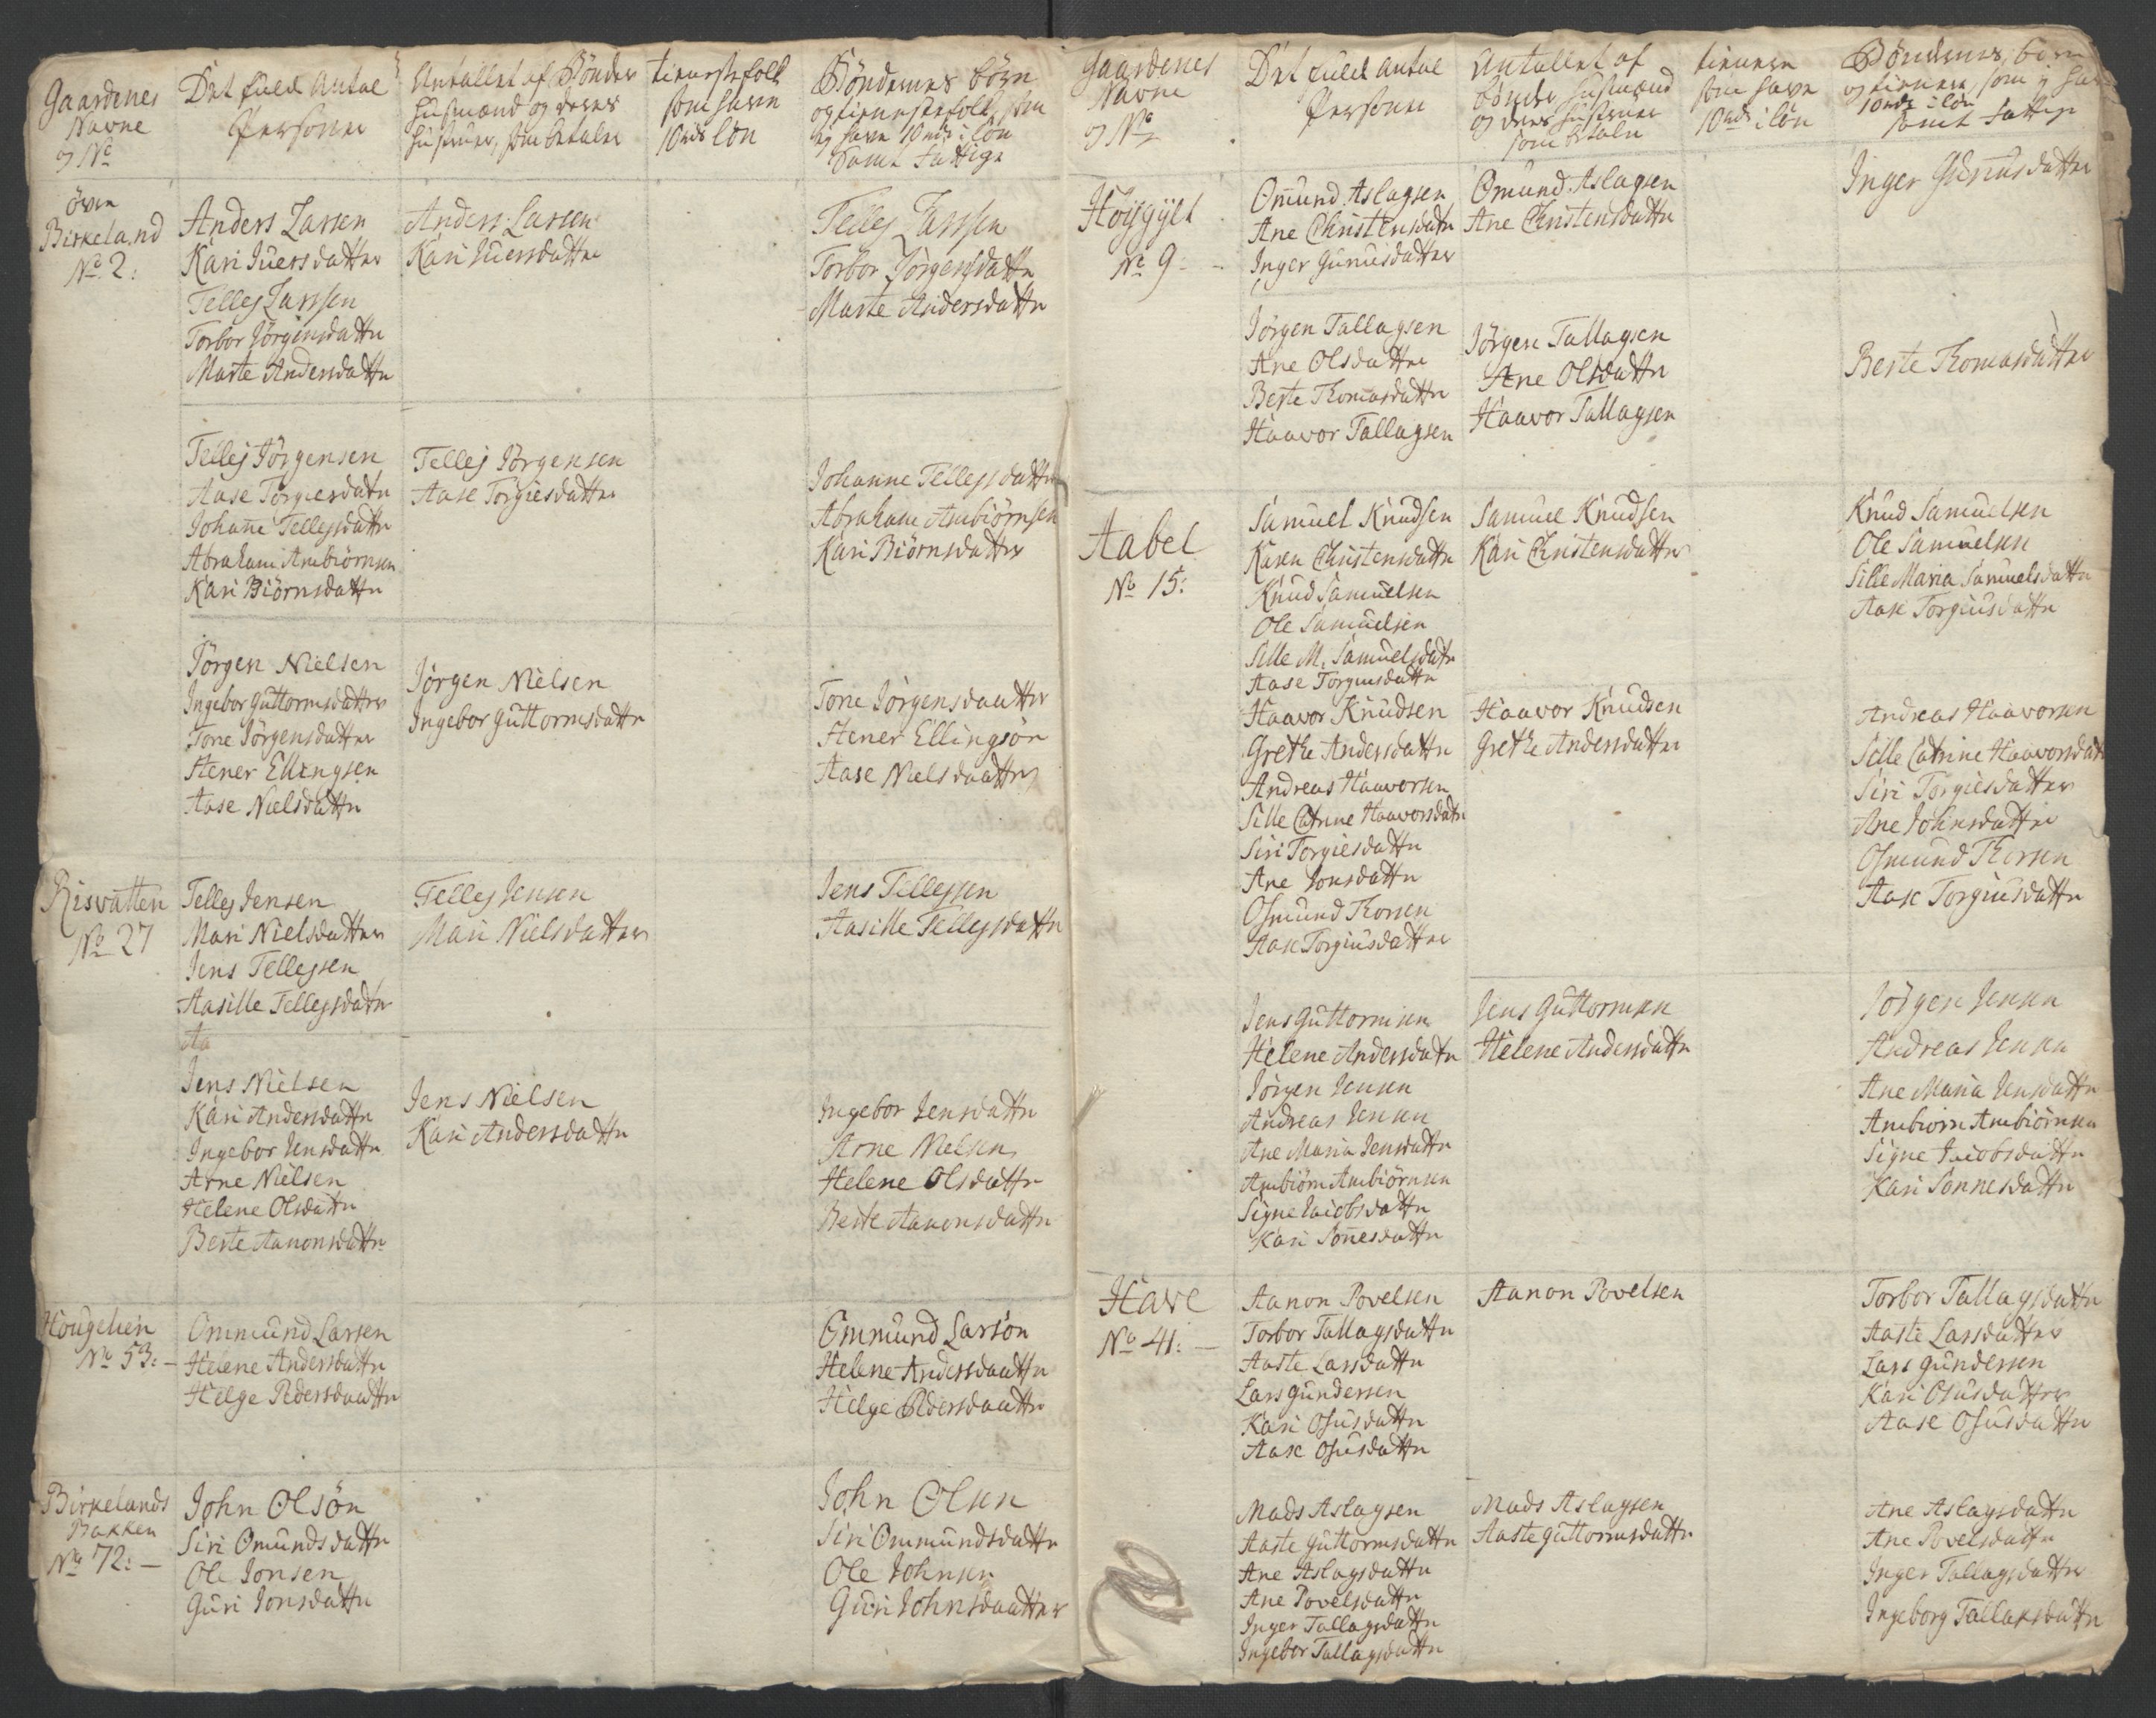 Gaardenes
Navne
og No
Det fuld Antal
Personer
Antallet af Bönder
Huusmænd og deres
Hustruer, som betaler
tienestefolk
som have
10 rd Lön
Böndernes börn
og tienestefolk som
ey have 10 rd i lön
Samt Fattige
öven
Birkeland
No 2:
Anders Larsen
Kari Iuersdatter
Tellej Larssen
Torbor Jörgensdatter
Marte Andersdatter
Anders Larsen
Kari Iuersdatter
Tellej Larssen
Torbor Jörgensdatter
Marte Andersdatter
Tellej Jörgensen
Aase Torgiersdatter
Johanne Tellejsdatter
Abraham Ambiörnsen
Kari Biörnsdatter
Tellej Jörgensen
Aase Torgiesdatter
Johanne Tellejsdatter
Abraham Ambiörnsen
Kari Biörnsdatter
Jörgen Nielsen
Ingebor Guttormsdatter
Tone Jörgensdatter
Stener Ellingsen
Aase Nielsdatter
Jörgen Nielsen
Ingebor Guttormsdatter
Tone Jörgensdaatter
Stener Ellingsön
Aase Nielsdaatter
Risvatten
No 27
Tellej Jensen
Mari Nielsdatter
Jens Tellejsen
Aasille Tellejsdatter
Aa
Tellej Jensen
Mari Nielsdatter
Jens Tellejsen
Aasille Tellejsdatter
Jens Nielsen
Kari Andersdatter
Ingebor Jensdatter
Arne Nielsen
Helene Olsdatter
Berte Aanonsdatter
Jens Nielsen
Kari Andersdatter
Ingebor Jensdatter
Arne Nielsen
Helene Olsdatter
Berte Aanonsdatter
Hougelien
No 53:
Ommund Larsen
Helene Andersdatter
Helge Pedersdaatter
Ommund Larsön
Helene Andersdaatter
Helge Pedersdaatter
Birkelands
Bakken
No 72:
John Olsön
Siri Omundsdatter
Ole Jonsen
Guri Jonsdatter
John Olsen
Siri Ommundsdatter
Ole Johnsen
Guri Johnsdaatter
Gaardenes
Navne
og No
Det fuld Antal
Personer
Antallet af
bönder Husmænd
og deres Hustruer
som betaler
tienere
som have
10 rd i lön
Böndernes, börn
og tienere, som ey have
10 rd i lön
samt Fattige
Höygylt
No 9:
Omund Aslagsen
Ane Christensdatter
Inger Gunusdatter
Omund Aslagsen
Ane Christensdatter
Inger Gunusdatter
Jörgen Tallagsen
Ane Olsdatter
Berte Thomasdatter
Haavor Tallagsen
Jörgen Tallagsen
Ane Olsdatter
Haavor Tallagsen
Berte Thomasdatter
Aabel
No 15:
Samuel Knudsen
Karen Christensdatter
Knud Samuelsen
Ole Samuelsen
Sille M. Samuelsdatter
Aase Torgiusdatter
Samuel Knudsen
Kari Christensdatter
Knud Samuelsen
Ole Samuelsen
Sille Maria Samuelsdatter
Aase Torgiusdatter
Haavor Knudsen
Grethe Andersdatter
Andreas Haavorsen
Sille Catrine Haavorsdatter
Siri Torgiesdatter
Ane Jonsdatter
Osmund Thorsen
Aase Torgiusdatter
Haavor Knudsen
Grethe Andersdatter
Andreas Haavorsen
Sille Catrine Haavorsdatter
Siri Torgiesdatter
Ane Johnsdatter
Osmund Thorsen
Aase Torgiusdatter
Jens Guttormsen
Helene Andersdatter
Jörgen Jensen
Andreas Jensen
Ane Maria Jensdatter
Ambiörn Ambiörnsen
Signe Jacobsdatter
Kari Sonnesdatter
Jens Guttormsen
Helene Andersdatter
Jörgen Jensen
Andreas Jensen
Ane Maria Jensdatter
Ambiörn Ambiörnsen
Signe Jacobsdatter
Kari Sonnesdatter
Have
No 41:
Aanon Povelsen
Torbor Tallagsdatter
Aaste Larsdatter
Lars Gundersen
Kari Osusdatter
Aase Osusdatter
Aanon Povelsen
Torbor Tallagsdatter
Aaste Larsdatter
Lars Gundersen
Kari Osusdatter
Aase Osusdatter
Mads Aslagsen
Aaste Guttormsdatter
Ane Aslagsdatter
Ane Povelsdatter
Inger Tallagsdatter
Ingebor Tallagsdatter
Mads Aslagsen
Aaste Guttormsdatter
Ane Aslagsdatter
Ane Povelsdatter
Inger Tallagsdatter
Ingeborg Tallaksdatter